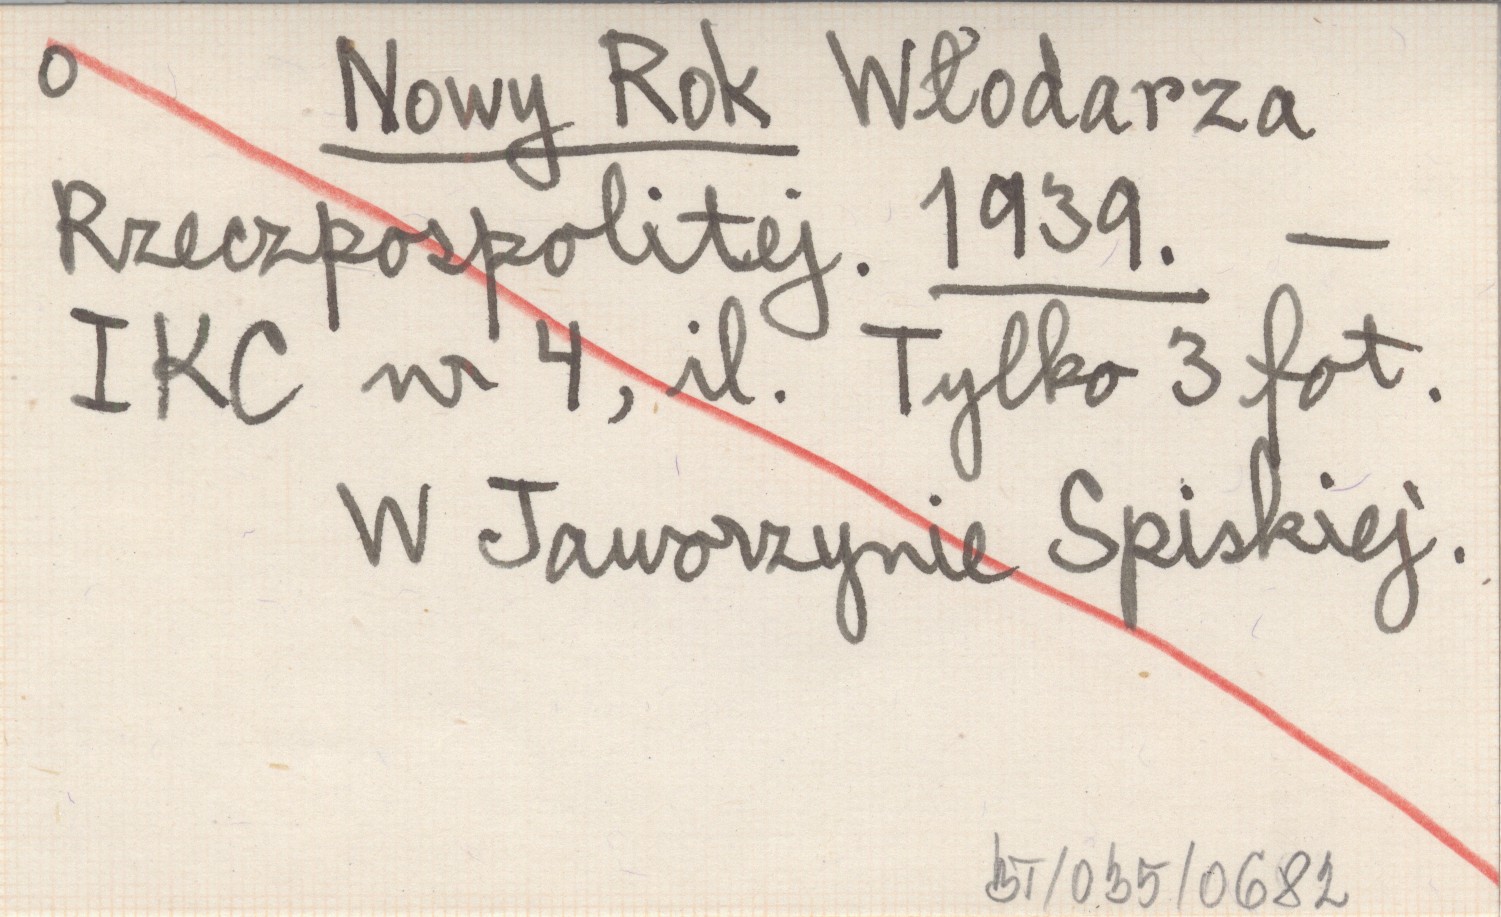 o Nowy Rok Włodarza
Rzeczpospolitej. 1939. —
IKC nr 4, il. Tylko 3 fot.
W Jaworzynie Spiskiej.
BT/035/0682